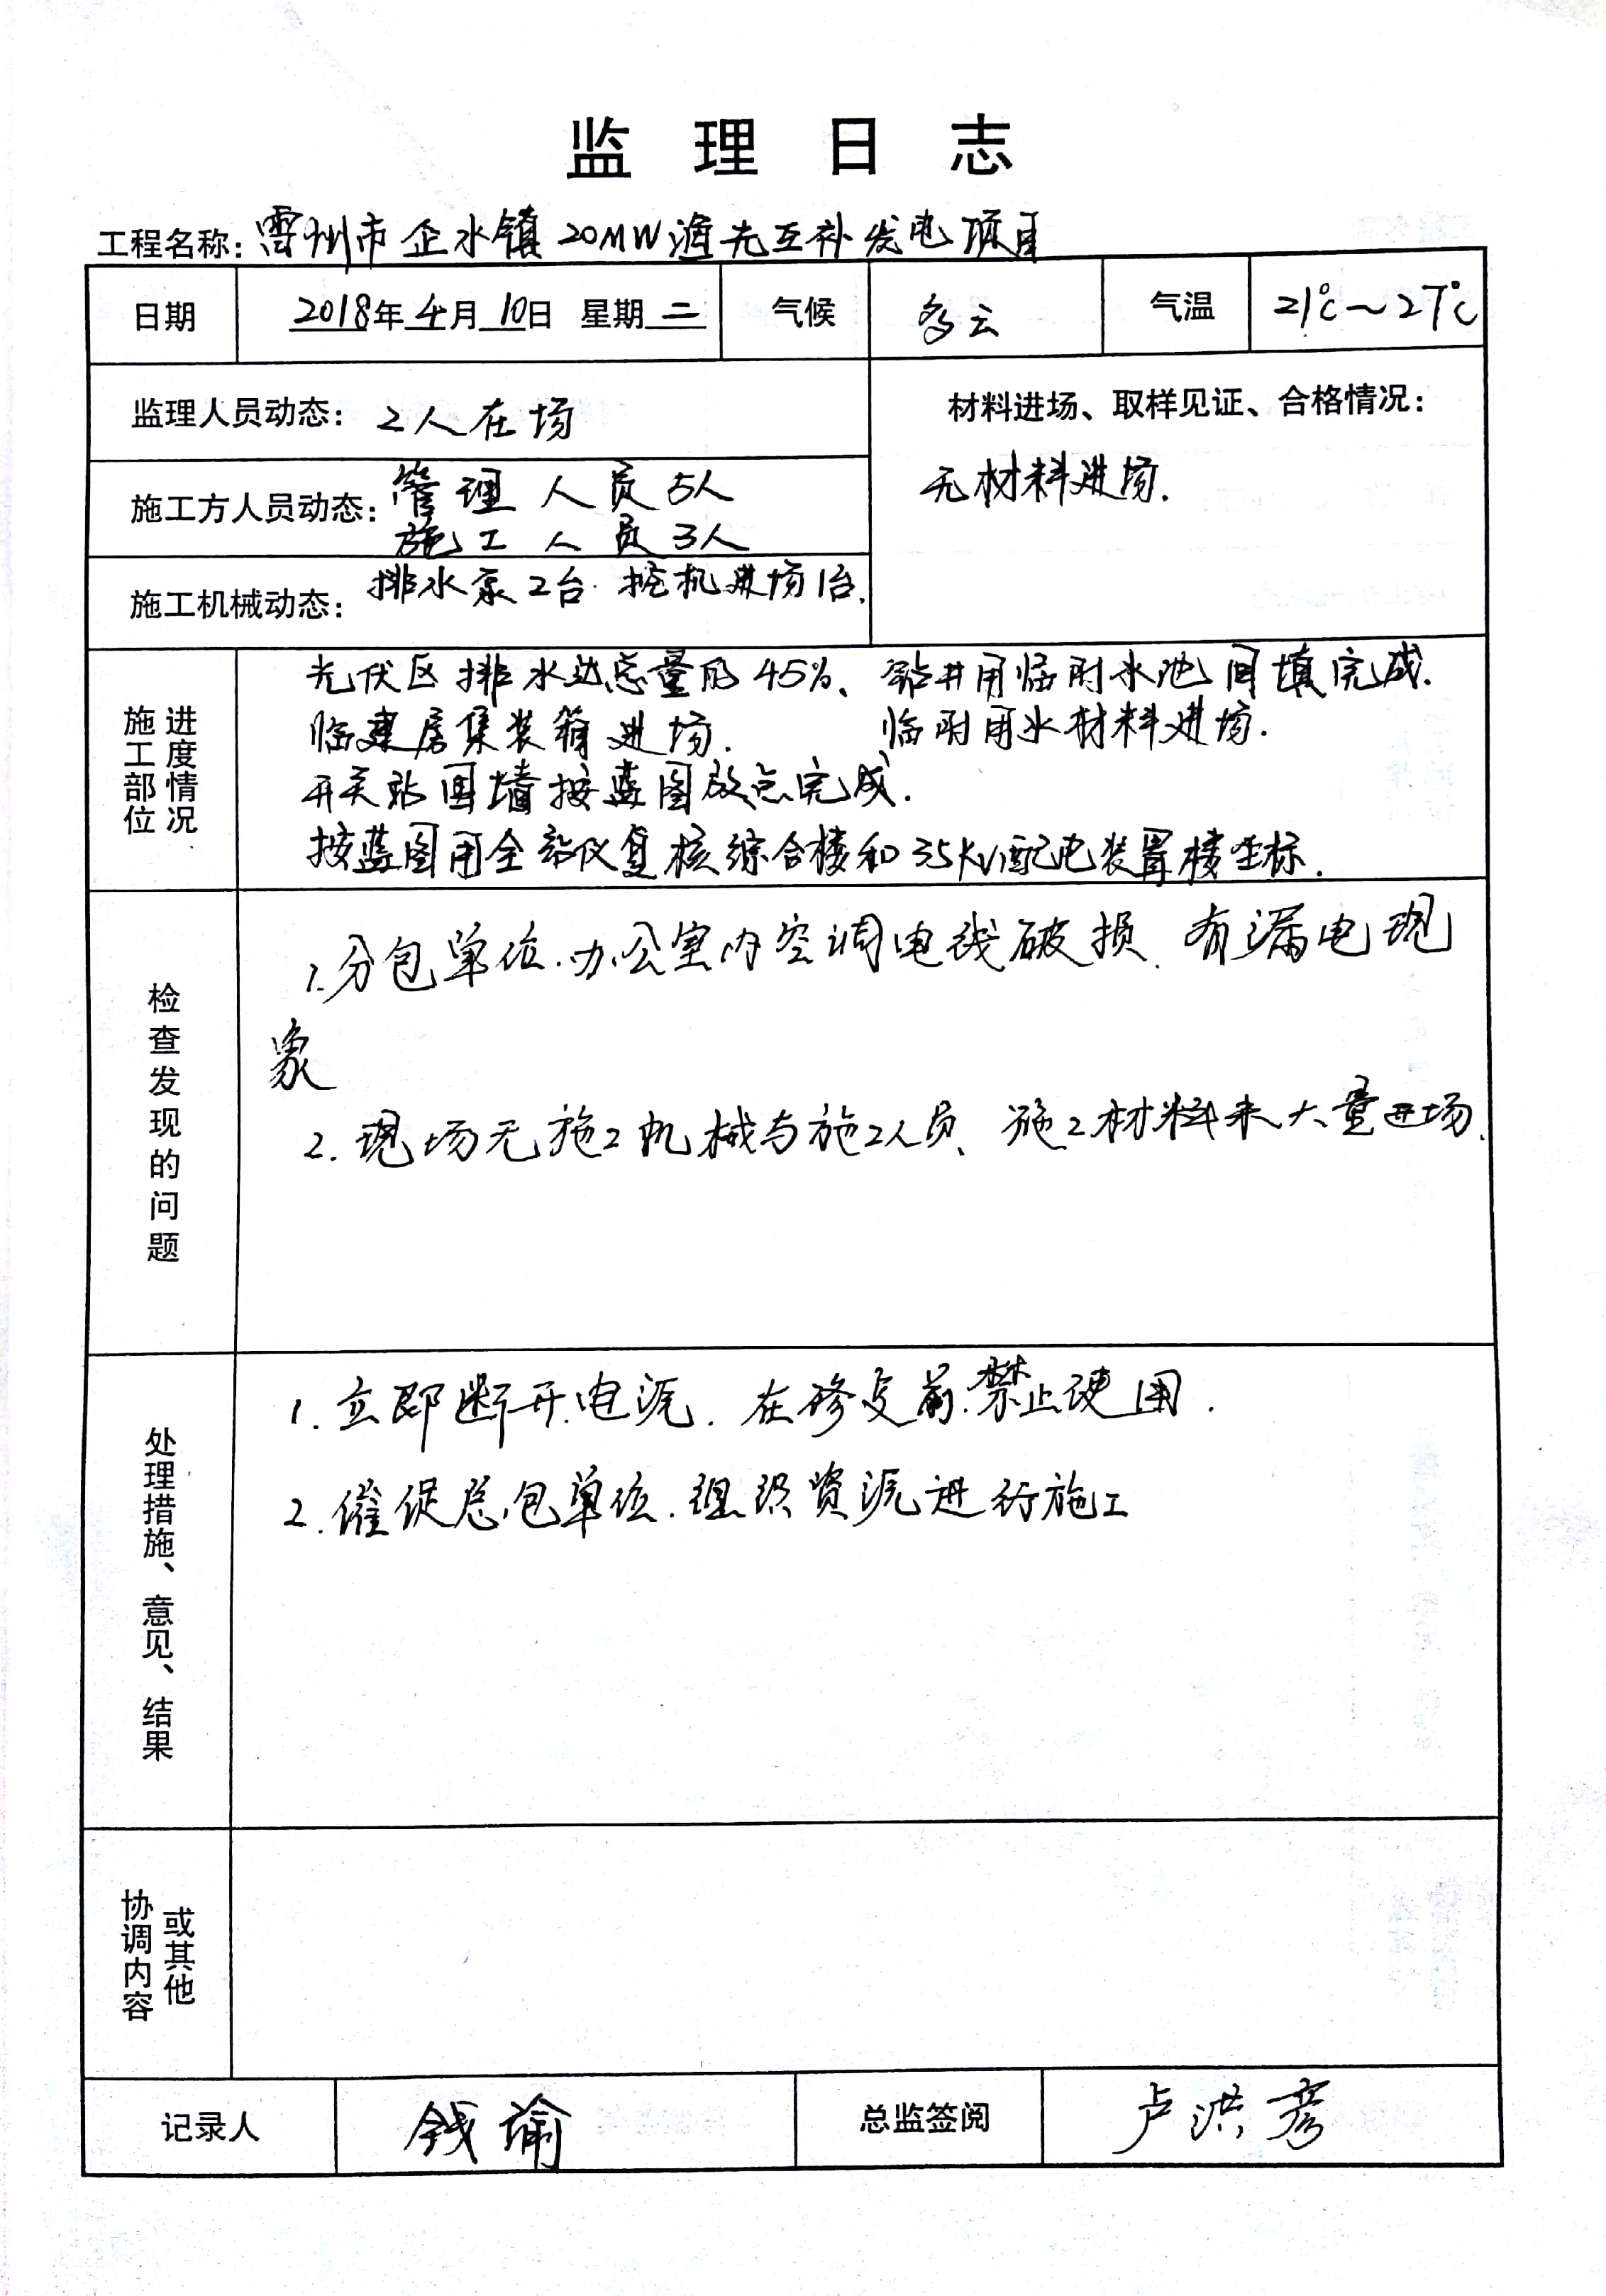 监理日志
工程名称：雷州市企水镇20MW渔光互补发电项目
日期 2018年4月10日 星期二 气候 多云 气温 21℃～27℃
监理人员动态：2人在场
材料进场、取样见证、合格情况：
无材料进场.
施工方人员动态：管理人员5人
施工人员3人
施工机械动态：排水泵2台.挖机进场1台.
施工部位
进度情况
光伏区排水达总量的45%、钻井用临时水池回填完成.
临建房集装箱进场. 临时用水材料进场.
开关站围墙按蓝图放点完成.
按蓝图用全站仪复核综合楼和35KV配电装置楼坐标.
检查发现的问题
1.分包单位.办公室内空调电线破损.有漏电现
象
2.现场无施工机械与施工人员、施工材料未大量进场.
处理措施、意见、结果
1.立即断开电源.在修复前.禁止使用.
2.催促总包单位.组织资源进行施工
协调内容
或其他
记录人 钱瑜 总监签阅 卢洪彦